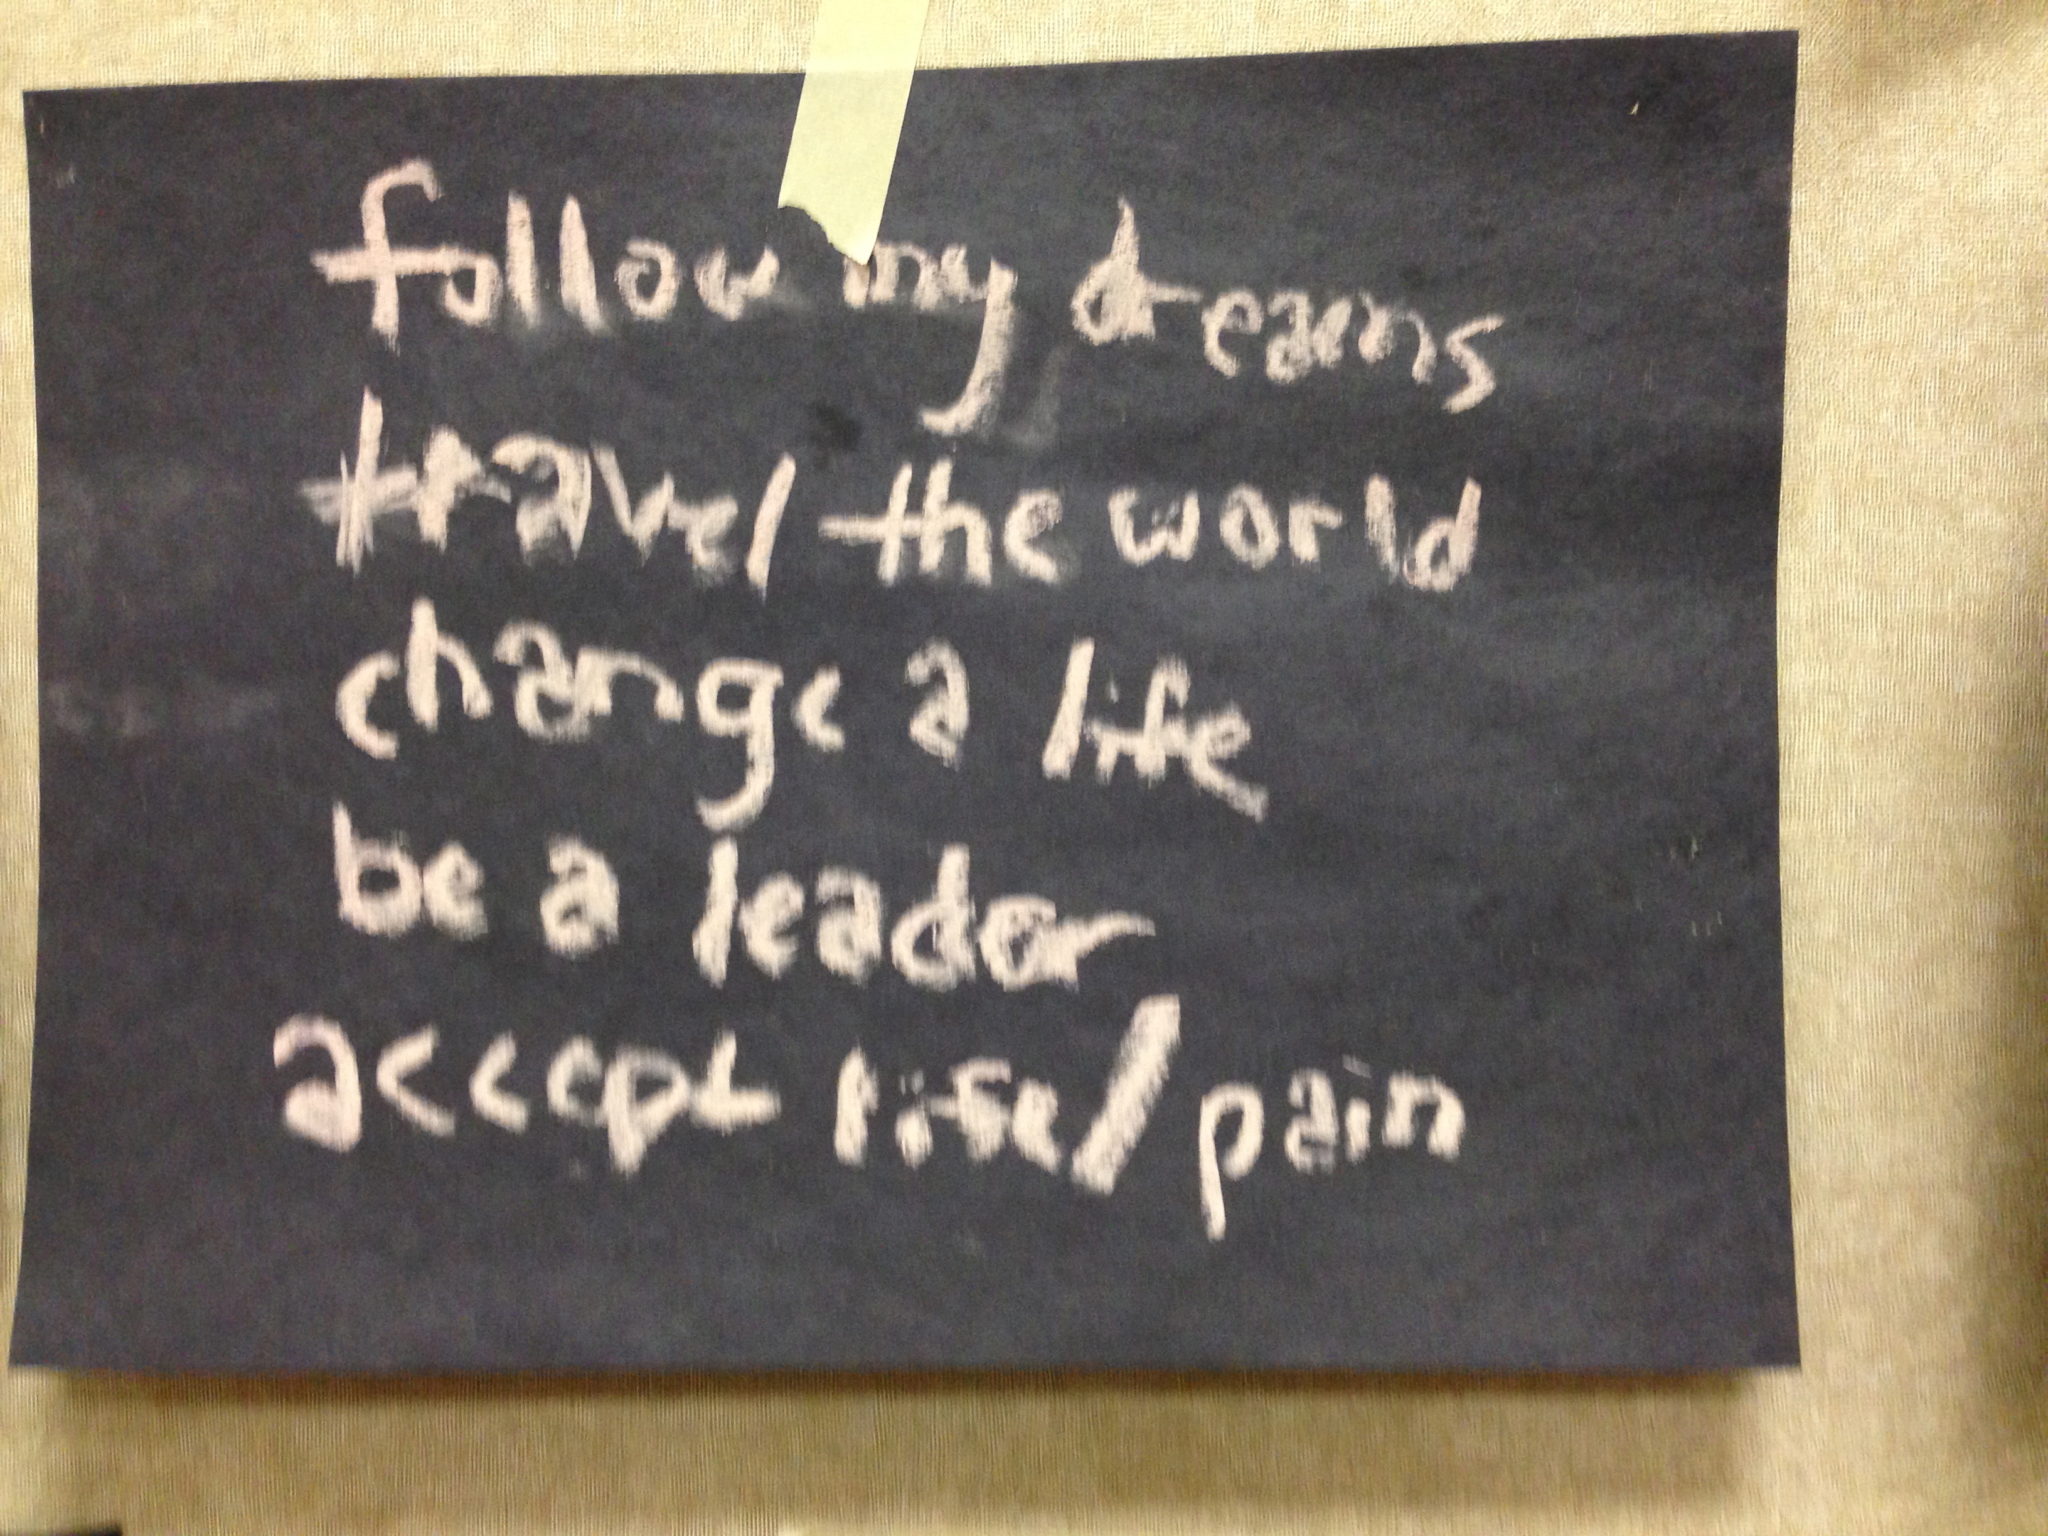 follow my dreams
travel the world
change a life
be a leader
accept life/pain